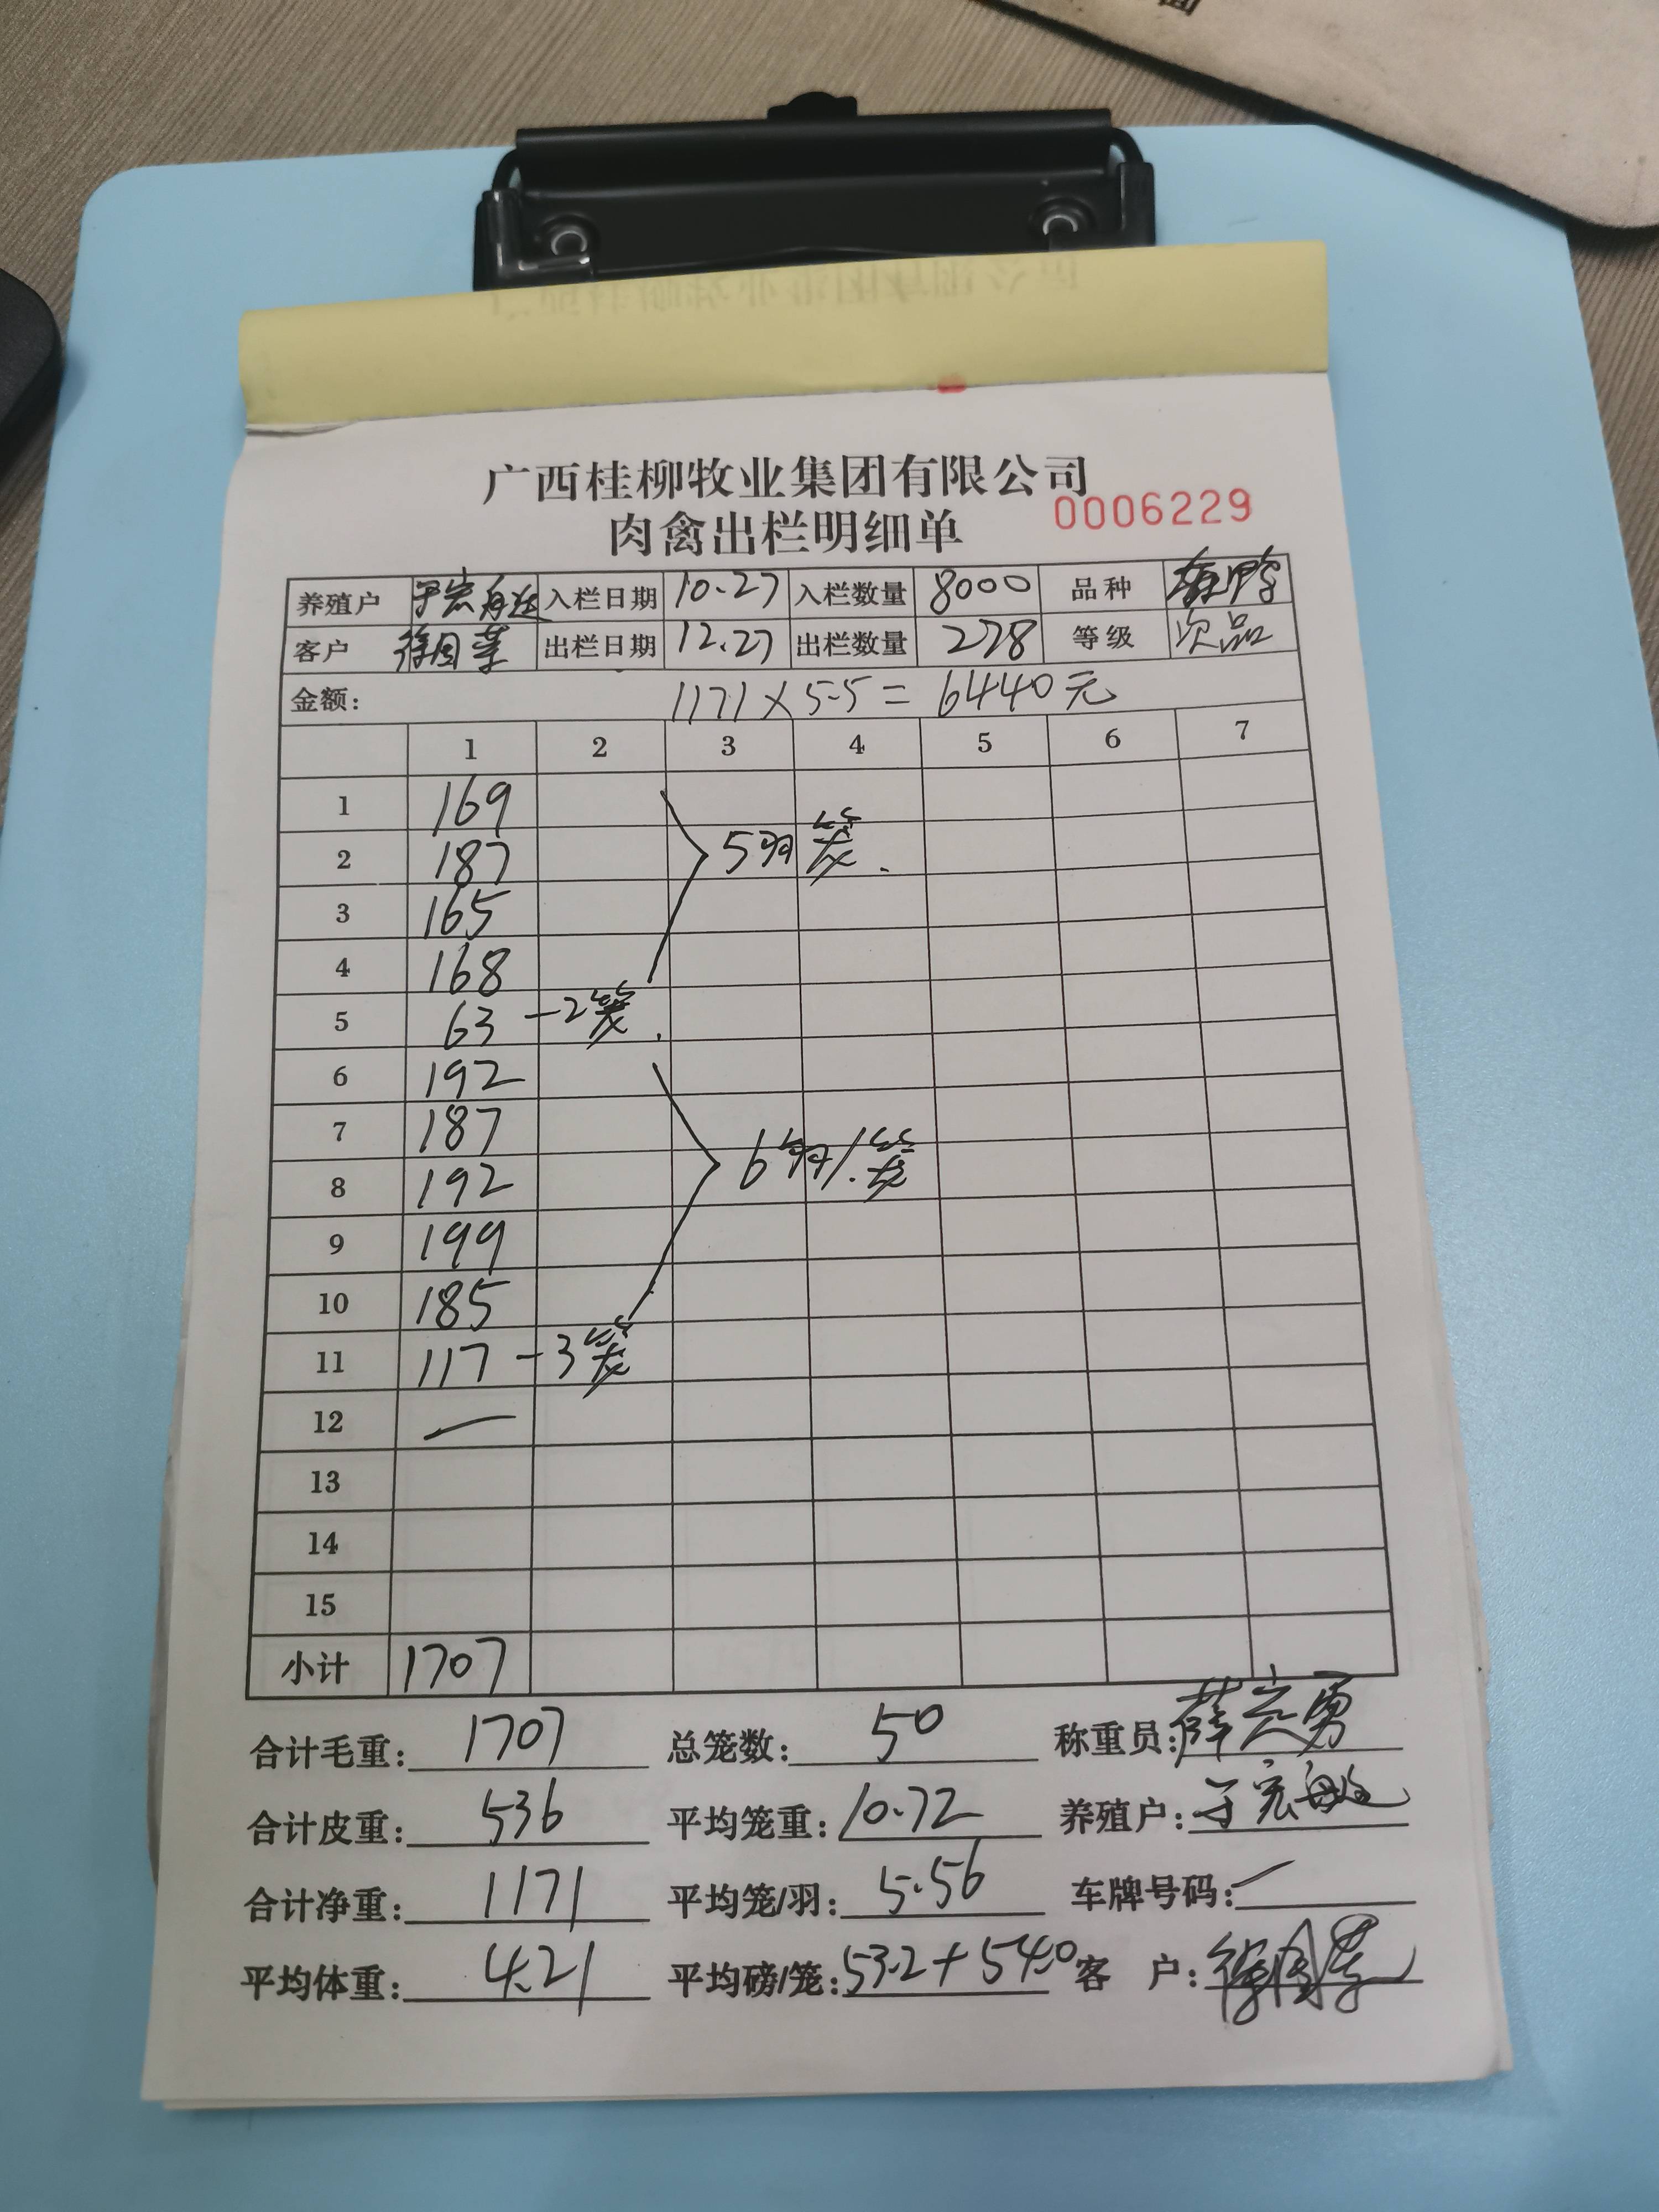 广西桂柳牧业集团有限公司
肉禽出栏明细单 0006229
养殖户 入栏日期 10.27 入栏数量 8000 品种
客户 出栏日期 12.27 出栏数量 278 等级 次品
金额: 1171×5.5=6440元
1 2 3 4 5 6 7
1 169
2 187 5羽 笼.
3 165
4 168
5 63 -2笼.
6 192
7 187
8 192 6羽/笼
9 199
10 185
11 117 -3笼
12 —
13
14
15
小计 1707
合计毛重: 1707 总笼数: 50 称重员:
合计皮重: 536 平均笼重: 10.72 养殖户:
合计净重: 1171 平均笼/羽: 5.56 车牌号码: —
平均体重: 4.21 平均磅/笼: 53.2+54.0 客 户: